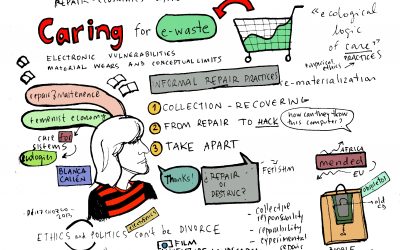 Caring for e-waste
"ecological
logic
of care"
PRACTICES
ELECTRONIC VULNERABILITIES
MATERIAL WEARS AND CONCEPTUAL LIMITS
INFORMAL REPAIR PRACTICES
re-materialization
repair & maintenence
feminist economy
care for
sistems
① COLLECTION - RECOVERING
② FROM REPAIR TO HACK
how can they throw
this computer?
③ TAKE APART
BLANCA
CALLÉN
Thanks!
¿ REPAIR
OR
DESTRUC?
FETISHM
AFRICA
mended
EU
obsolete!
old
- collective
responsability
- reparability
- experimental
repair
ETHICS and POLITICS can't be DIVORCE
FILM